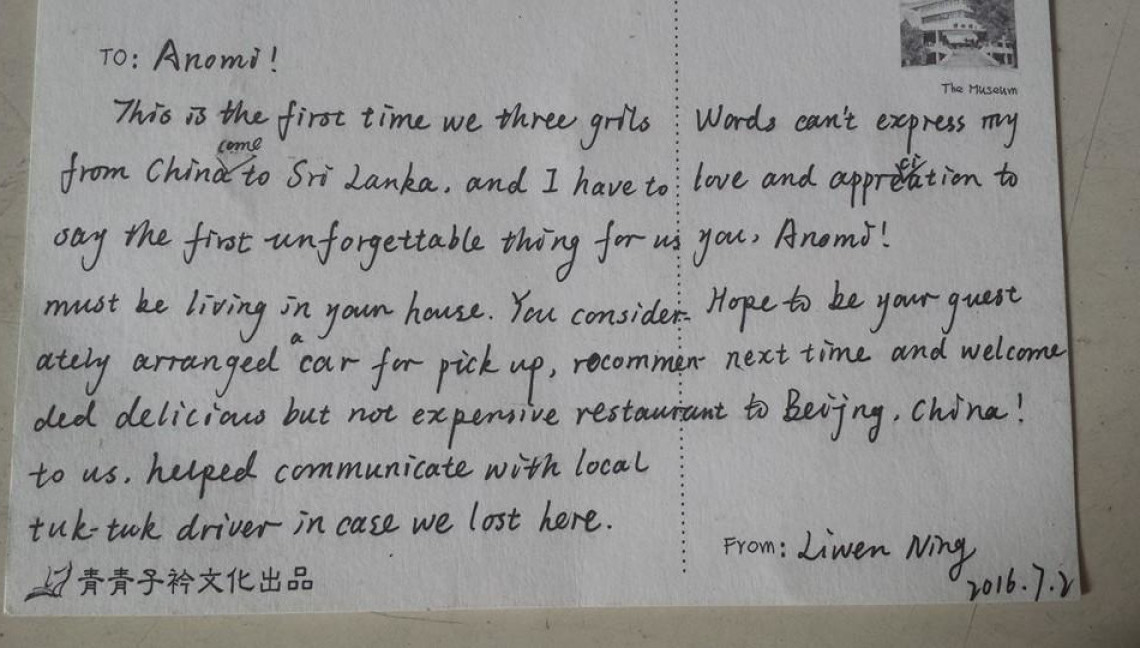 TO: Anomi!
This is the first time we three grils
from China come to Sri Lanka, and I have to
say the first unforgettable thing for us
must be living in your house. You consider-
ately arranged a car for pick up, recommen-
ded delicious but not expensive restaurant
to us, helped communicate with local
tuk-tuk driver in case we lost here.
青青子衿文化出品
The Museum
Words can't express my
love and appreciation to
you, Anomi!
Hope to be your guest
next time and welcome
to Beijng, China!
From: Liwen Ning
2016.7.2